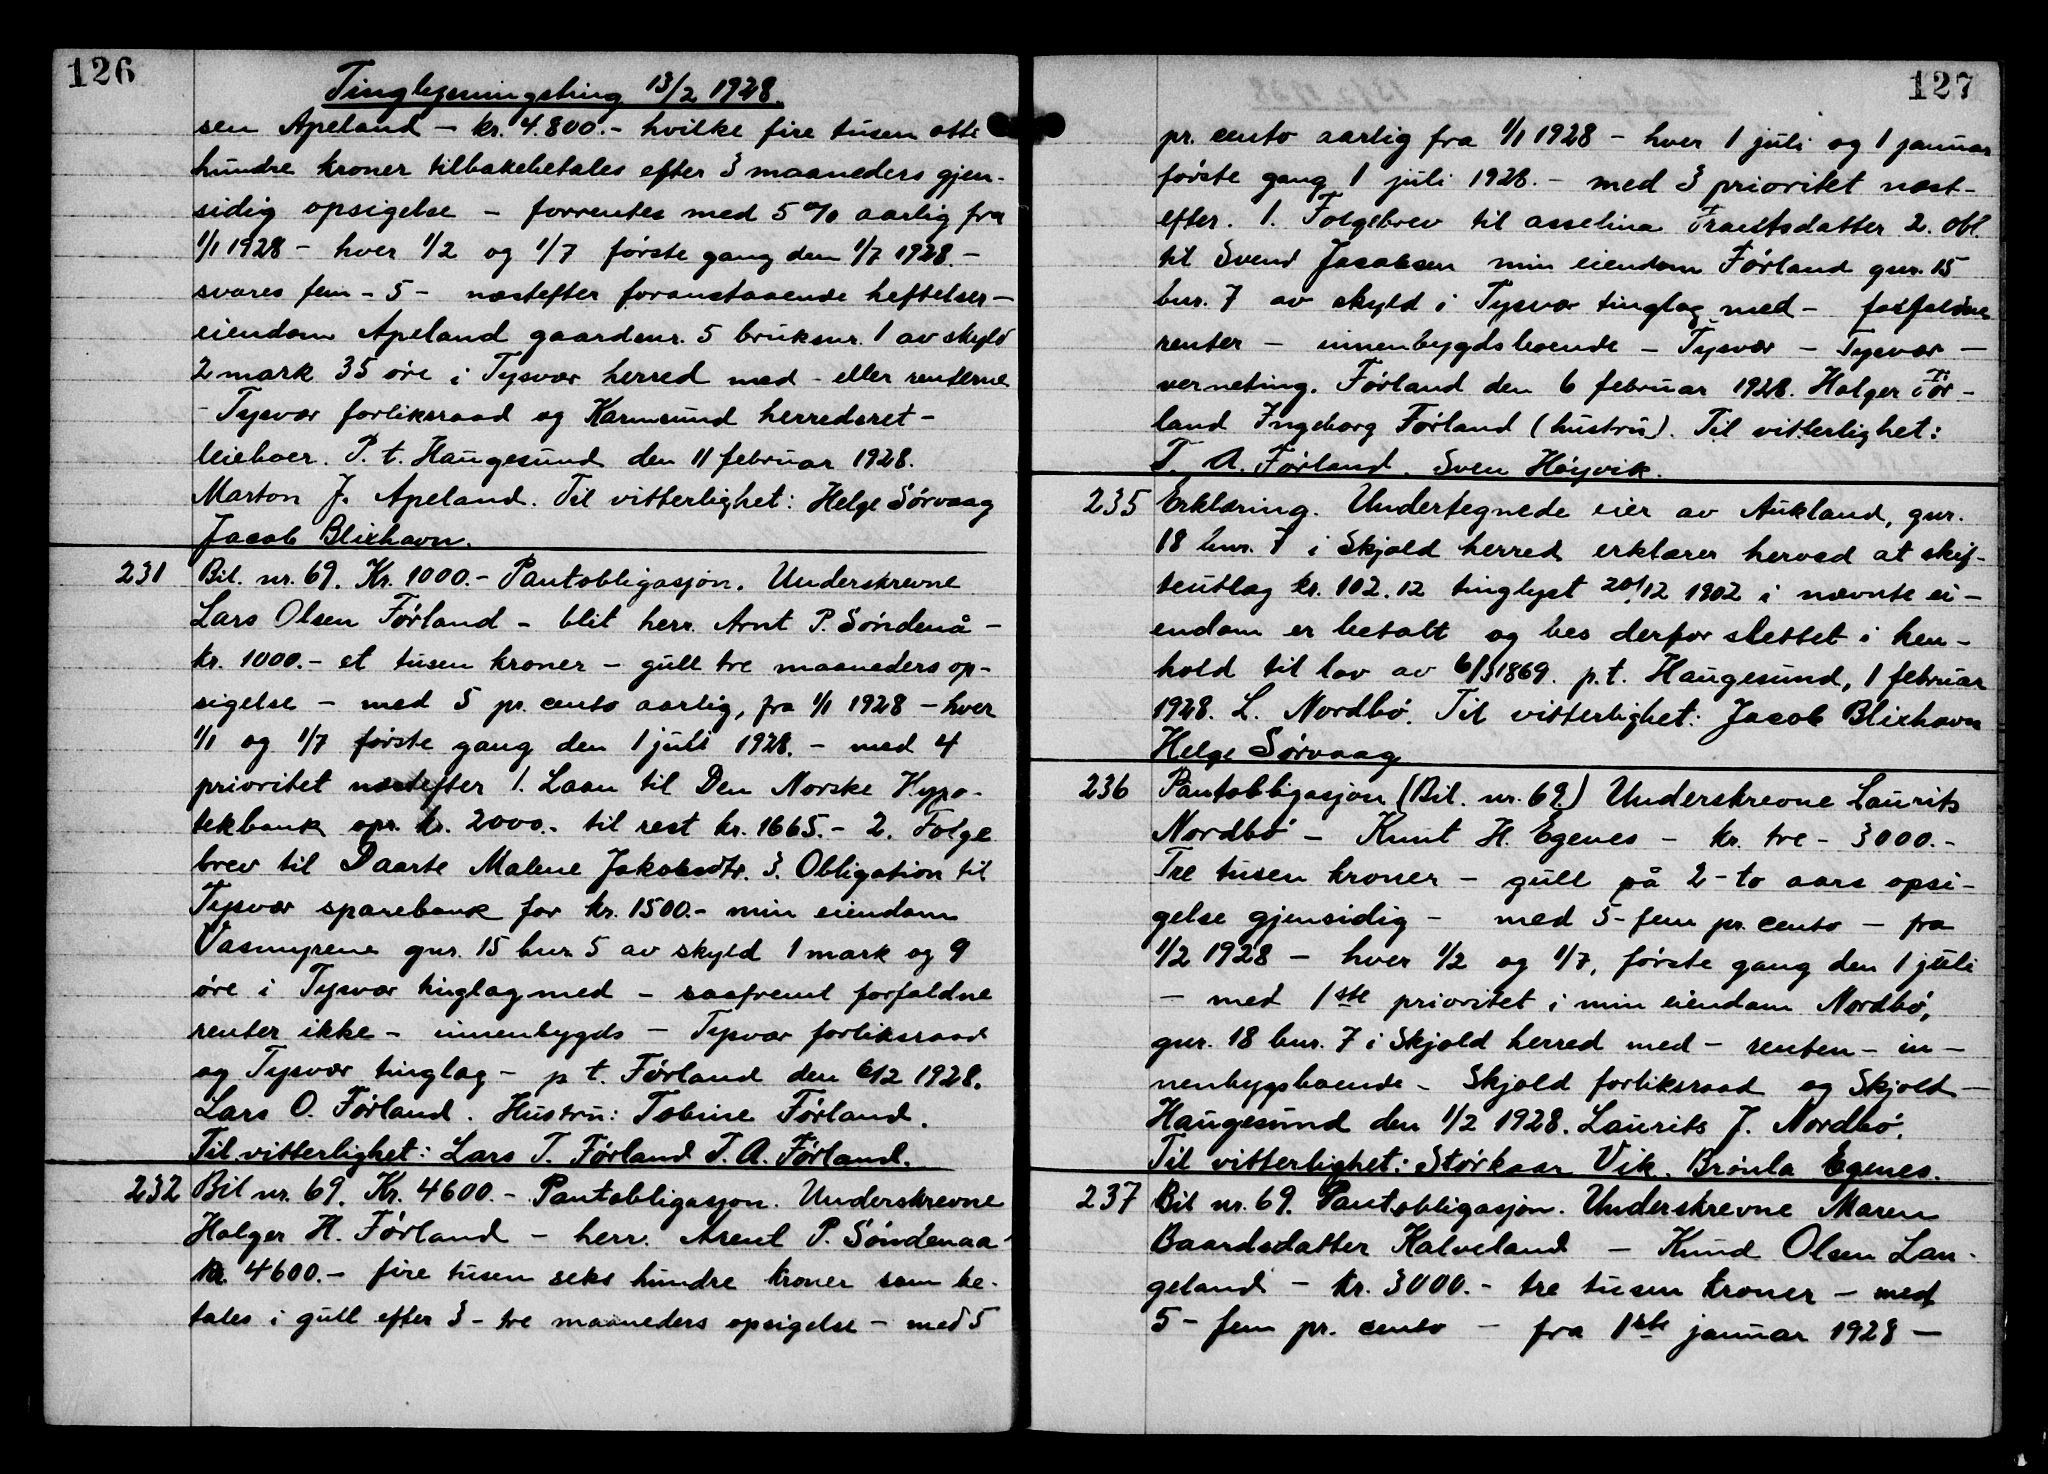 126
Tinglysningsting 13/2 1928.
sen Apeland – kr. 4.800.- hvilke fire tusen otte
hundre kroner tilbakebetales efter 3 maaneders gjen-
sidig opsigelse – forrentes med 5 % aarlig fra
1/1 1928 – hver 1/2 og 1/7 første gang den 1/7 1928.-
svares fem - 5 - næstefter foranstaaende heftelser –
eiendom Apeland gaardsnr. 5 bruksnr. 1 av skyld
2 mark 35 øre i Tysvær herred med - eller renterne
- Tysvær forliksraad og Karmsund herredsret -
leieboer. P. t. Haugesund den 11 februar 1928.
Marton J. Apeland. Til vitterlighet: Helge Sørvaag
Jacob Blixhavn.
231 Bil. nr. 69. Kr. 1000.- Pantobligasjon. Underskrevne
Lars Olsen Førland – blit herr Arnt P. Søndenå –
kr. 1000.- et tusen kroner – gull tre maaneders op-
sigelse – med 5 pr. cento aarlig, fra 1/1 1928 – hver
1/1 og 1/7 første gang den 1 juli 1928. – med 4
prioritet næstefter 1. Laan til Den Norske Hypo-
tekbank opr. kr. 2000.- til rest kr. 1665.- 2. Følge
brev til Daarte Malene Jakobsdtr. 3. Obligation til
Tysvær sparebank for kr. 1500.- min eiendom
Vasmyrene gnr. 15 bnr. 5 av skyld 1 mark og 9
øre i Tysvær tinglag med – saafremt forfaldne
renter ikke – innenbygds – Tysvær forliksraad
og Tysvær tinglag – p t. Førland den 6/2 1928.
Lars O. Førland. Hustru: Tobine Førland.
Til vitterlighet: Lars T. Førland T. A. Førland.
232 Bil nr. 69. Kr. 4600.- Pantobligasjon. Underskrevne
Holger H. Førland – herr. Arent P. Søndenaa
kr 4600.- fire tusen seks hundre kroner som be-
tales i gull efter 3 - tre maaneders opsigelse – med 5
127
pr. cento aarlig fra 1/1 1928 – hver 1 juli og 1 januar
første gang 1 juli 1928. – med 3 prioritet næst-
efter. 1. Følgebrev til asselina Trantsdatter 2. Obl.
til Svend Jacobsen min eiendom Førland gnr. 15
bnr. 7 av skyld i Tysvær tinglag med – forfaldne
renter – innenbygdsboende – Tysvær – Tysvær –
verneting. Førland den 6 februar 1928. Holger Før-
land Ingeborg Førland (hustru). Til vitterlighet:
T. A. Førland. Sven Høyvik.
235 Erklæring. Undertegnede eier av Aukland, gnr.
18 bnr. 7 i Skjold herred erklærer herved at skif-
teutlag kr. 102.12 tinglyst 20/12 1902 i nævnte ei-
endom er betalt og bes derfor slettet i hen-
hold til lov av 6/3 1869. p.t. Haugesund, 1 februar
1928. L. Nordbø. Til vitterlighet: Jacob Blixhavn
Helge Sørvaag
236 Pantobligasjon (Bil. nr. 69.) Underskrevne Laurits
Nordbø – Knut H. Egenes – kr. tre - 3000.-
Tre tusen kroner – gull på 2 - to aars opsi-
gelse gjensidig – med 5 - fem pr. cento – fra
1/2 1928 – hver 1/2 og 1/7, første gang den 1 juli
– med 1ste prioritet i min eiendom Nordbø,
gnr. 18 bnr. 7 i Skjold herred med – renten – in-
nenbygsboende – Skjold forliksraad og Skjold –
Haugesund den 1/2 1928. Laurits J. Nordbø.
Til vitterlighet: Størkaar Vik. Brønla Egenes.
237 Bil nr. 69. Pantobligasjon. Underskrevne Maren
Baardsdatter Kalveland – Knud Olsen Lan-
geland – kr. 3000.- tre tusen kroner – med
5 - fem pr. cento – fra 1ste januar 1928 –